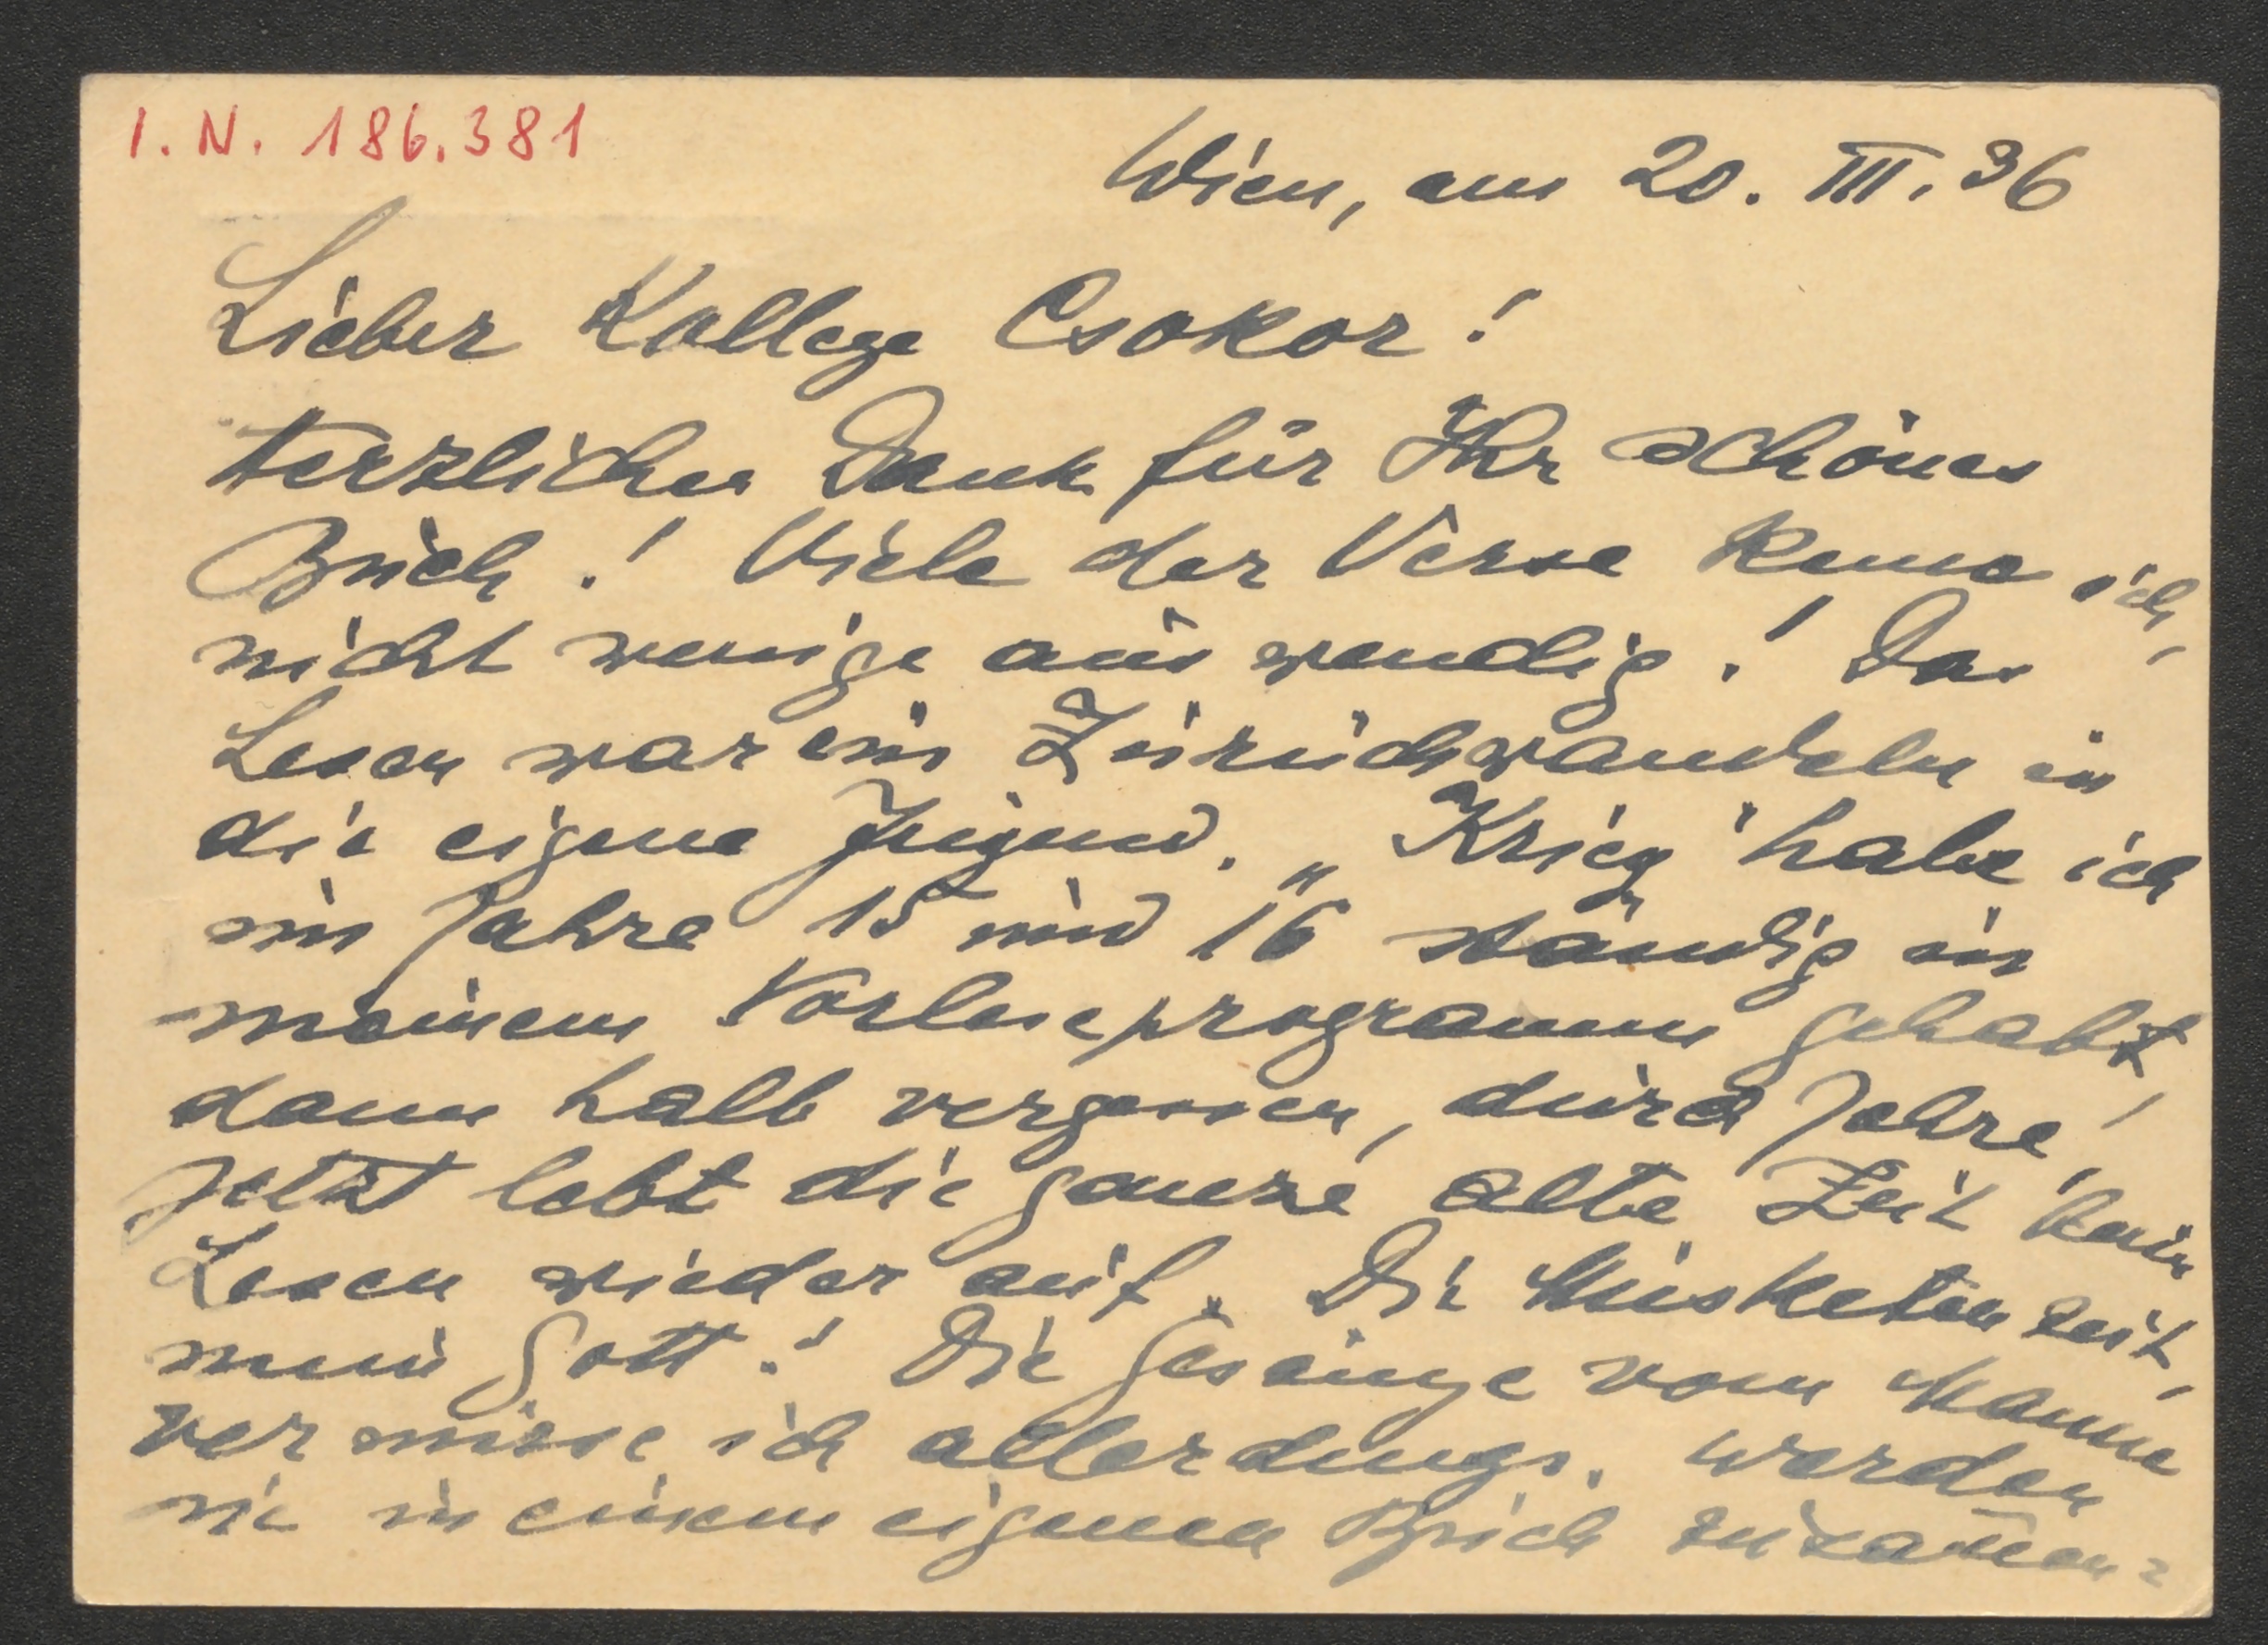 I. N. 186.381
Wien, am 20. III. 36
Lieber Kollege Csokor!
Herzlichen Dank für Ihr schönes
Buch! Viele der Verse kenne ich,
nicht wenige auswendig! Das
Lesen war ein Zurückwandeln in
die eigene Jugend. „Krieg" habe ich
im Jahre 15 und 16 ständig in
meinem Vorleseprogramm gehabt,
dann halb vergessen, durch Jahre!
Jetzt lebt die ganze alte Zeit beim
Lesen wieder auf. Die Musketenzeit,
mein Gott! Die Gesänge vom Manne
vermisse ich allerdings. Werden
sie in einem eigenen Buch zusam̅en=